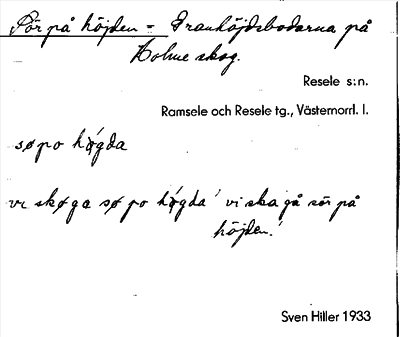 Sör på höjden = Granhöjdsbodarna på
Holme skog.
Resele s:n.
Ramsele och Resele tg., Västernorrl. l.
søpo høgda
vi skøga sø po høgda' vi ska gå sör på
höjden!
Sven Hiller 1933